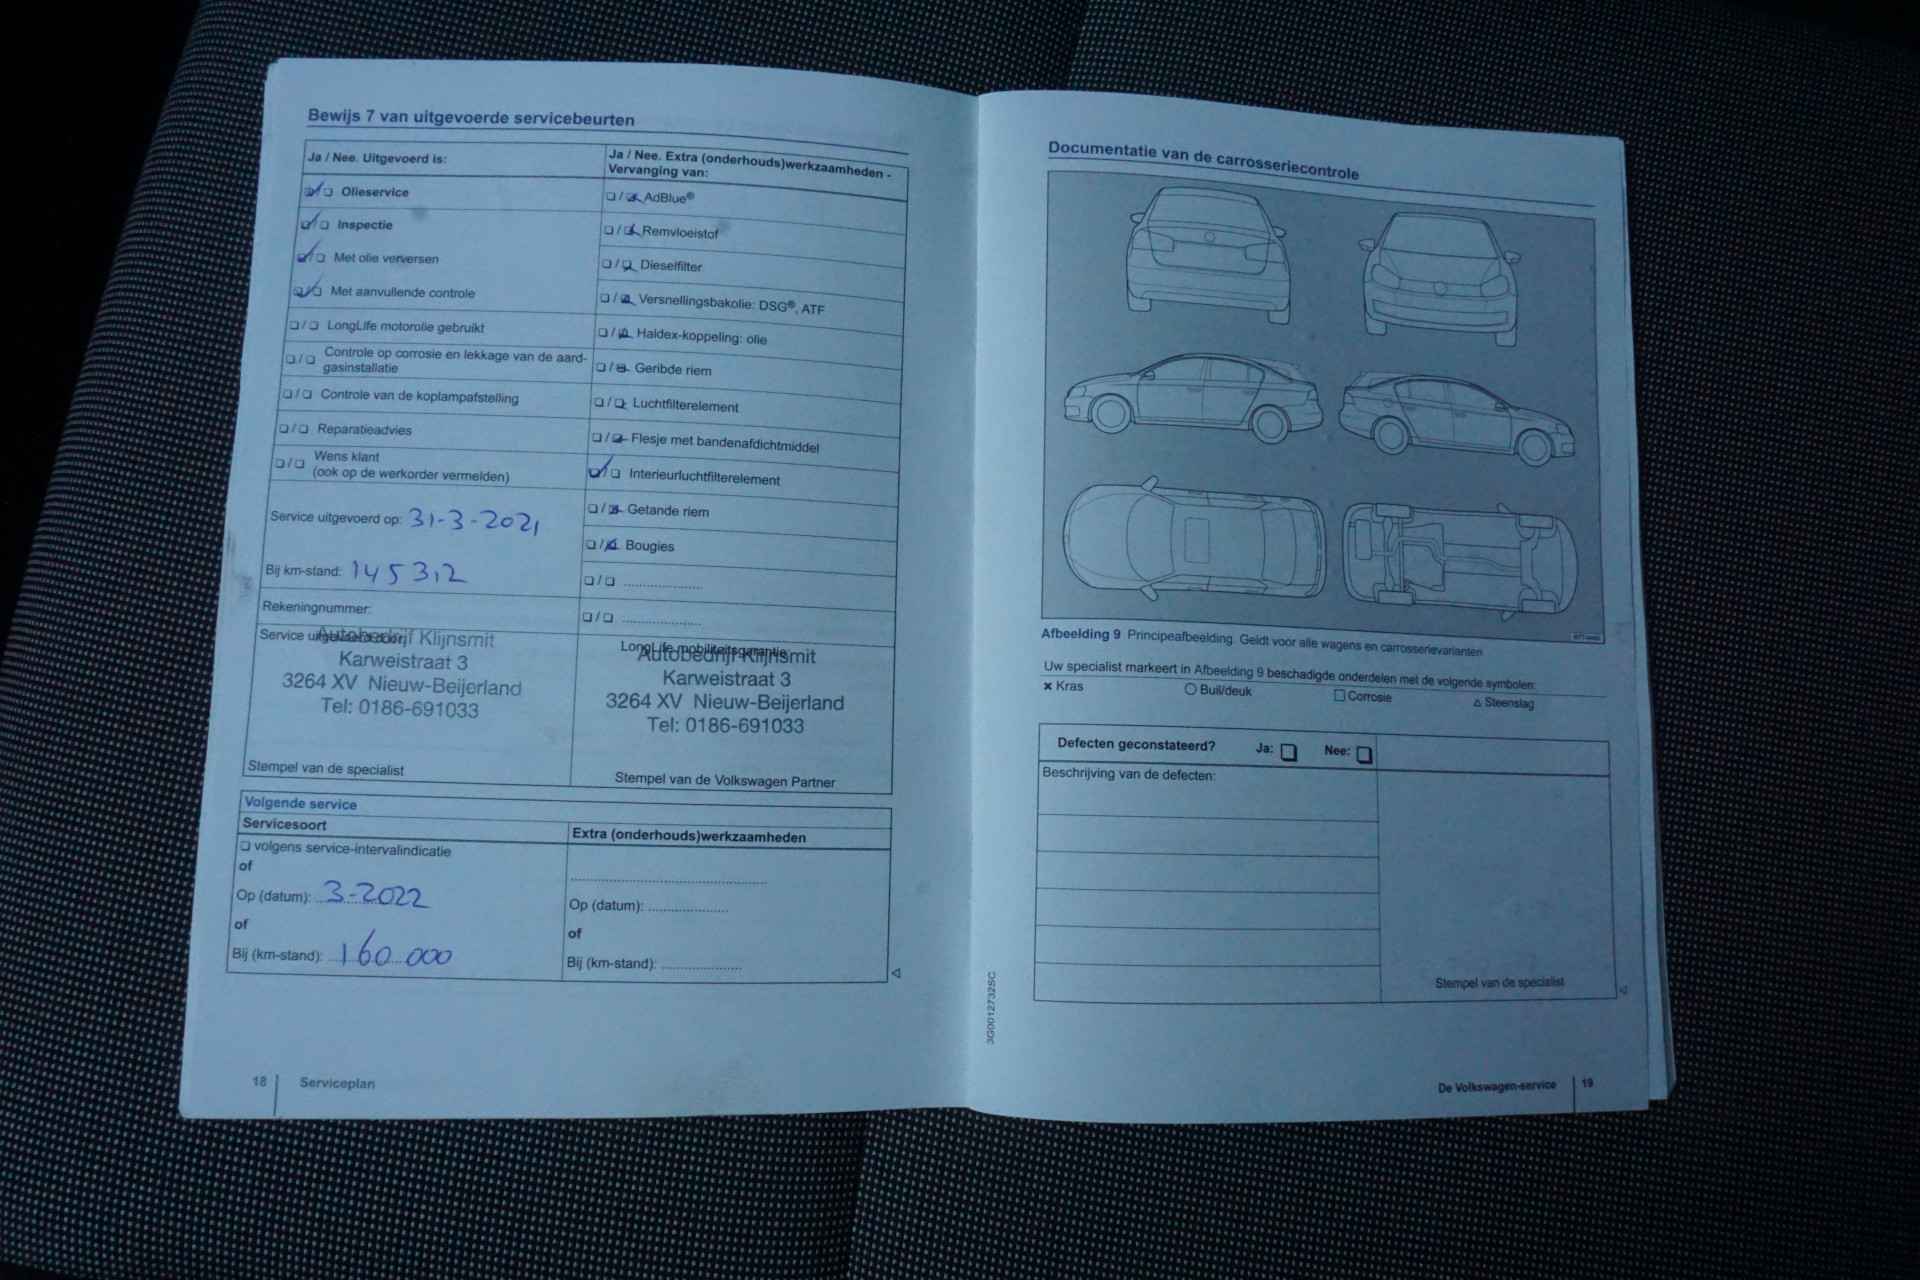 Bewijs 7 van uitgevoerde servicebeurten
Ja / Nee. Uitgevoerd is:
Olieservice
Inspectie
Met olie verversen
Met aanvullende controle
LongLife motorolie gebruikt
Controle op corrosie en lekkage van de aard-
gasinstallatie
Controle van de koplampafstelling
Reparatieadvies
Wens klant
(ook op de werkorder vermelden)
Service uitgevoerd op: 31-3-2021
Bij km-stand: 145312
Rekeningnummer:
Service uitgevoerd door:
Autobedrijf Klijnsmit
Karweistraat 3
3264 XV Nieuw-Beijerland
Tel: 0186-691033
Stempel van de specialist
Ja / Nee. Extra (onderhouds)werkzaamheden -
Vervanging van:
AdBlue®
Remvloeistof
Dieselfilter
Versnellingsbakolie: DSG®, ATF
Haldex-koppeling: olie
Geribde riem
Luchtfilterelement
Flesje met bandenafdichtmiddel
Interieurluchtfilterelement
Getande riem
Bougies
LongLife mobiliteitsgarantie
Autobedrijf Klijnsmit
Karweistraat 3
3264 XV Nieuw-Beijerland
Tel: 0186-691033
Stempel van de Volkswagen Partner
Volgende service
Servicesoort
volgens service-intervalindicatie
of
Op (datum): 3-2022
of
Bij (km-stand): 160.000
Extra (onderhouds)werkzaamheden
Op (datum):
of
Bij (km-stand):
18 Serviceplan
Documentatie van de carrosseriecontrole
Afbeelding 9 Principeafbeelding. Geldt voor alle wagens en carrosserievarianten
Uw specialist markeert in Afbeelding 9 beschadigde onderdelen met de volgende symbolen:
× Kras
Buil/deuk
Corrosie
Steenslag
Defecten geconstateerd? Ja: Nee:
Beschrijving van de defecten:
Stempel van de specialist
3G0012732SC
De Volkswagen-service 19